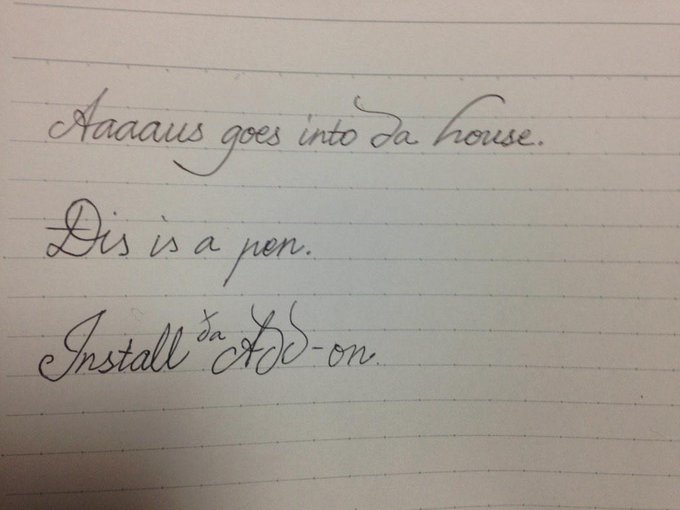 Aaaaus goes into da house.
Dis is a pen.
Install da Add-on.